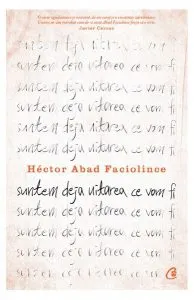 Javier Cercas
suntem deja uitarea ce vom fi
suntem deja uitarea ce vom fi
suntem deja uitarea ce vom fi
suntem deja uitarea ce vom fi
suntem deja uitarea ce vom fi
Héctor Abad Faciolince
suntem deja uitarea ce vom fi
suntem deja uitarea ce vom fi
suntem deja uitarea ce vom fi
suntem deja uitarea ce vom fi
suntem deja uitarea ce vom fi